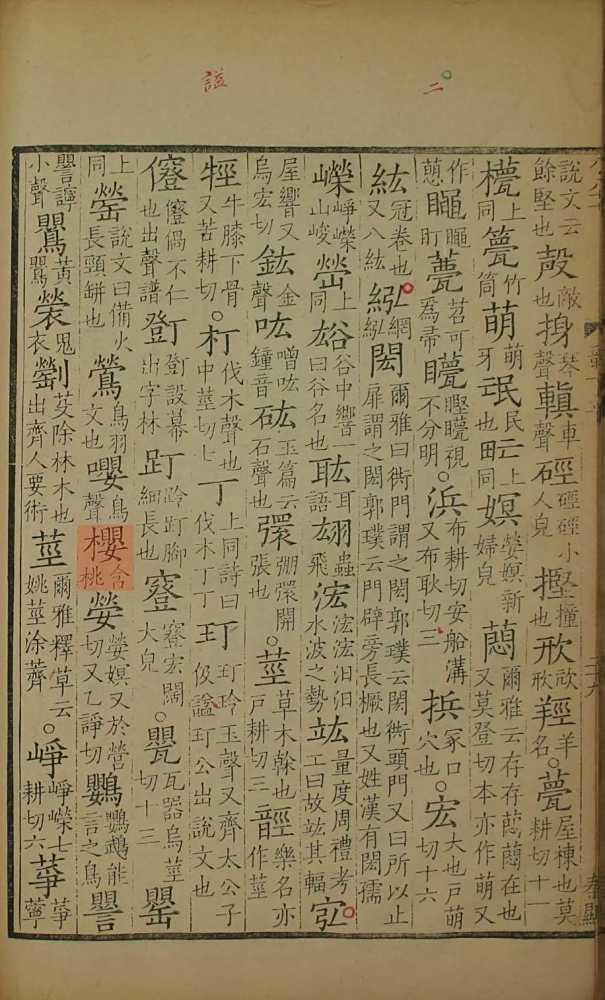 二
謚
說文云餘堅也㱿敲也揁琴聲轒車聲硜硜硜小人皃摼撞也㰢㰢㰢羥羊名○甍屋棟也莫耕切十一
㼹上同㼹竹筒萌萌牙氓民也甿上同嫇嫈嫇新婦皃莔爾雅云存存莔莔在也又莫登切本亦作萌又
作䁅䁅䁅盯甍苕可為帚矒瞪矒視不分明○浜布耕切安船溝又布耿切三浜冢口穴也○宏大也戶萌切十六
紘冠卷也又八紘紭網紭閎爾雅曰衖門謂之閎郭璞云閎衖頭門又曰所以止扉謂之閎郭璞云門辟旁長橛也又姓漢有閎孺
嶸崢嶸山峻㟳上同谹谷中響一曰谷名也耾耳語翃蟲飛浤浤浤汩汩水波之勢竑量度周禮考工曰故竑其輻宖
屋響又烏宏切鈜金聲吰噌吰鐘音砿玉篇云石聲也彋弸彋開張也○莖草木榦也戶耕切三䪫樂名亦作莖
牼牛膝下骨又苦耕切○朾伐木聲也中莖切七丁上同詩曰伐木丁丁玎玎玲玉聲又齊太公子伋謚玎公出說文也
僜僜偽不仁也出聲譜㽅㽅設幕出字林䟓跉䟓脚細長也䆸䆸宏闊大皃○甖瓦器烏莖切十三罌
上同罃說文曰備火長頸缾也鶯鳥羽文也嚶鳥聲櫻含桃嫈嫈嫇又於營切又乙諍切鸚鸚鵡能言之鳥譻
譻諍小聲䴌黃鸎褮鬼衣㔃芟除林木也出齊人要術莖爾雅釋草云姚莖涂薺○崢崢嶸七耕切六䔔䔔薴